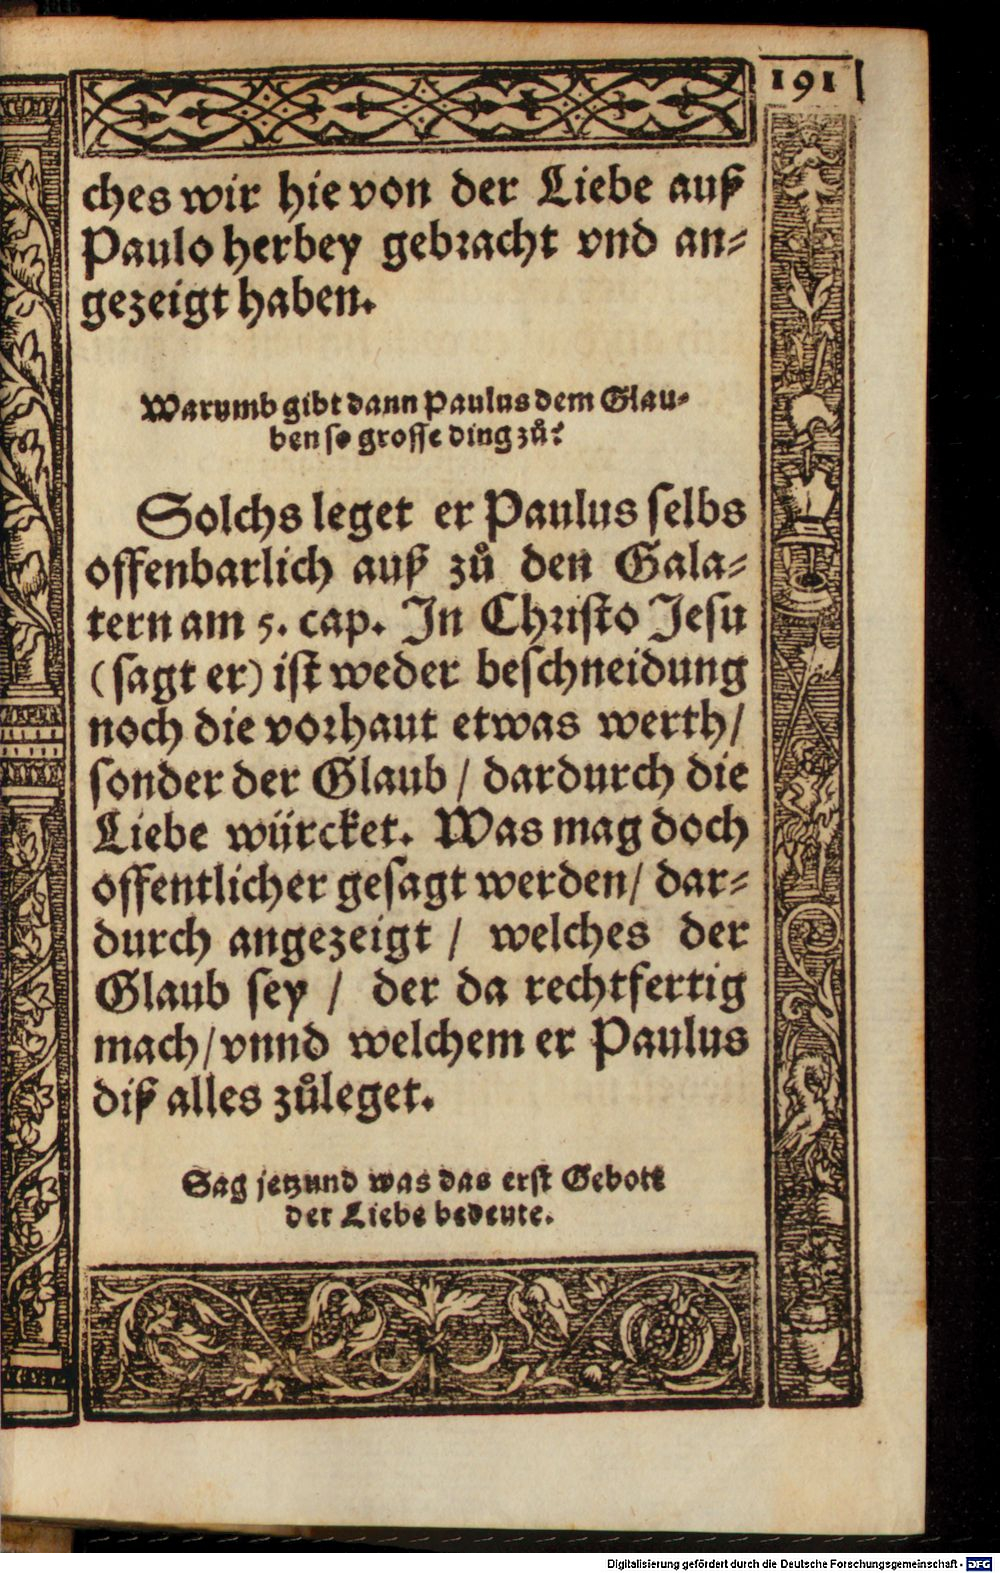 191
ches wir hie von der Liebe auß
Paulo herbey gebracht vnd an⸗
gezeigt haben.
Warumb gibt dann Paulus dem Glau⸗
ben so grosse ding zů?
Solchs leget er Paulus selbs
offenbarlich auß zů den Gala⸗
tern am 5. cap. In Christo Jesu
(sagt er) ist weder beschneidung
noch die vorhaut etwas werth/
sonder der Glaub / dardurch die
Liebe würcket. Was mag doch
offentlicher gesagt werden/ dar⸗
durch angezeigt / welches der
Glaub sey / der da rechtfertig
mach/ vnnd welchem er Paulus
diß alles zůleget.
Sag jetzund was das erst Gebott
der Liebe bedeute.
Digitalisierung gefördert durch die Deutsche Forschungsgemeinschaft - DFG